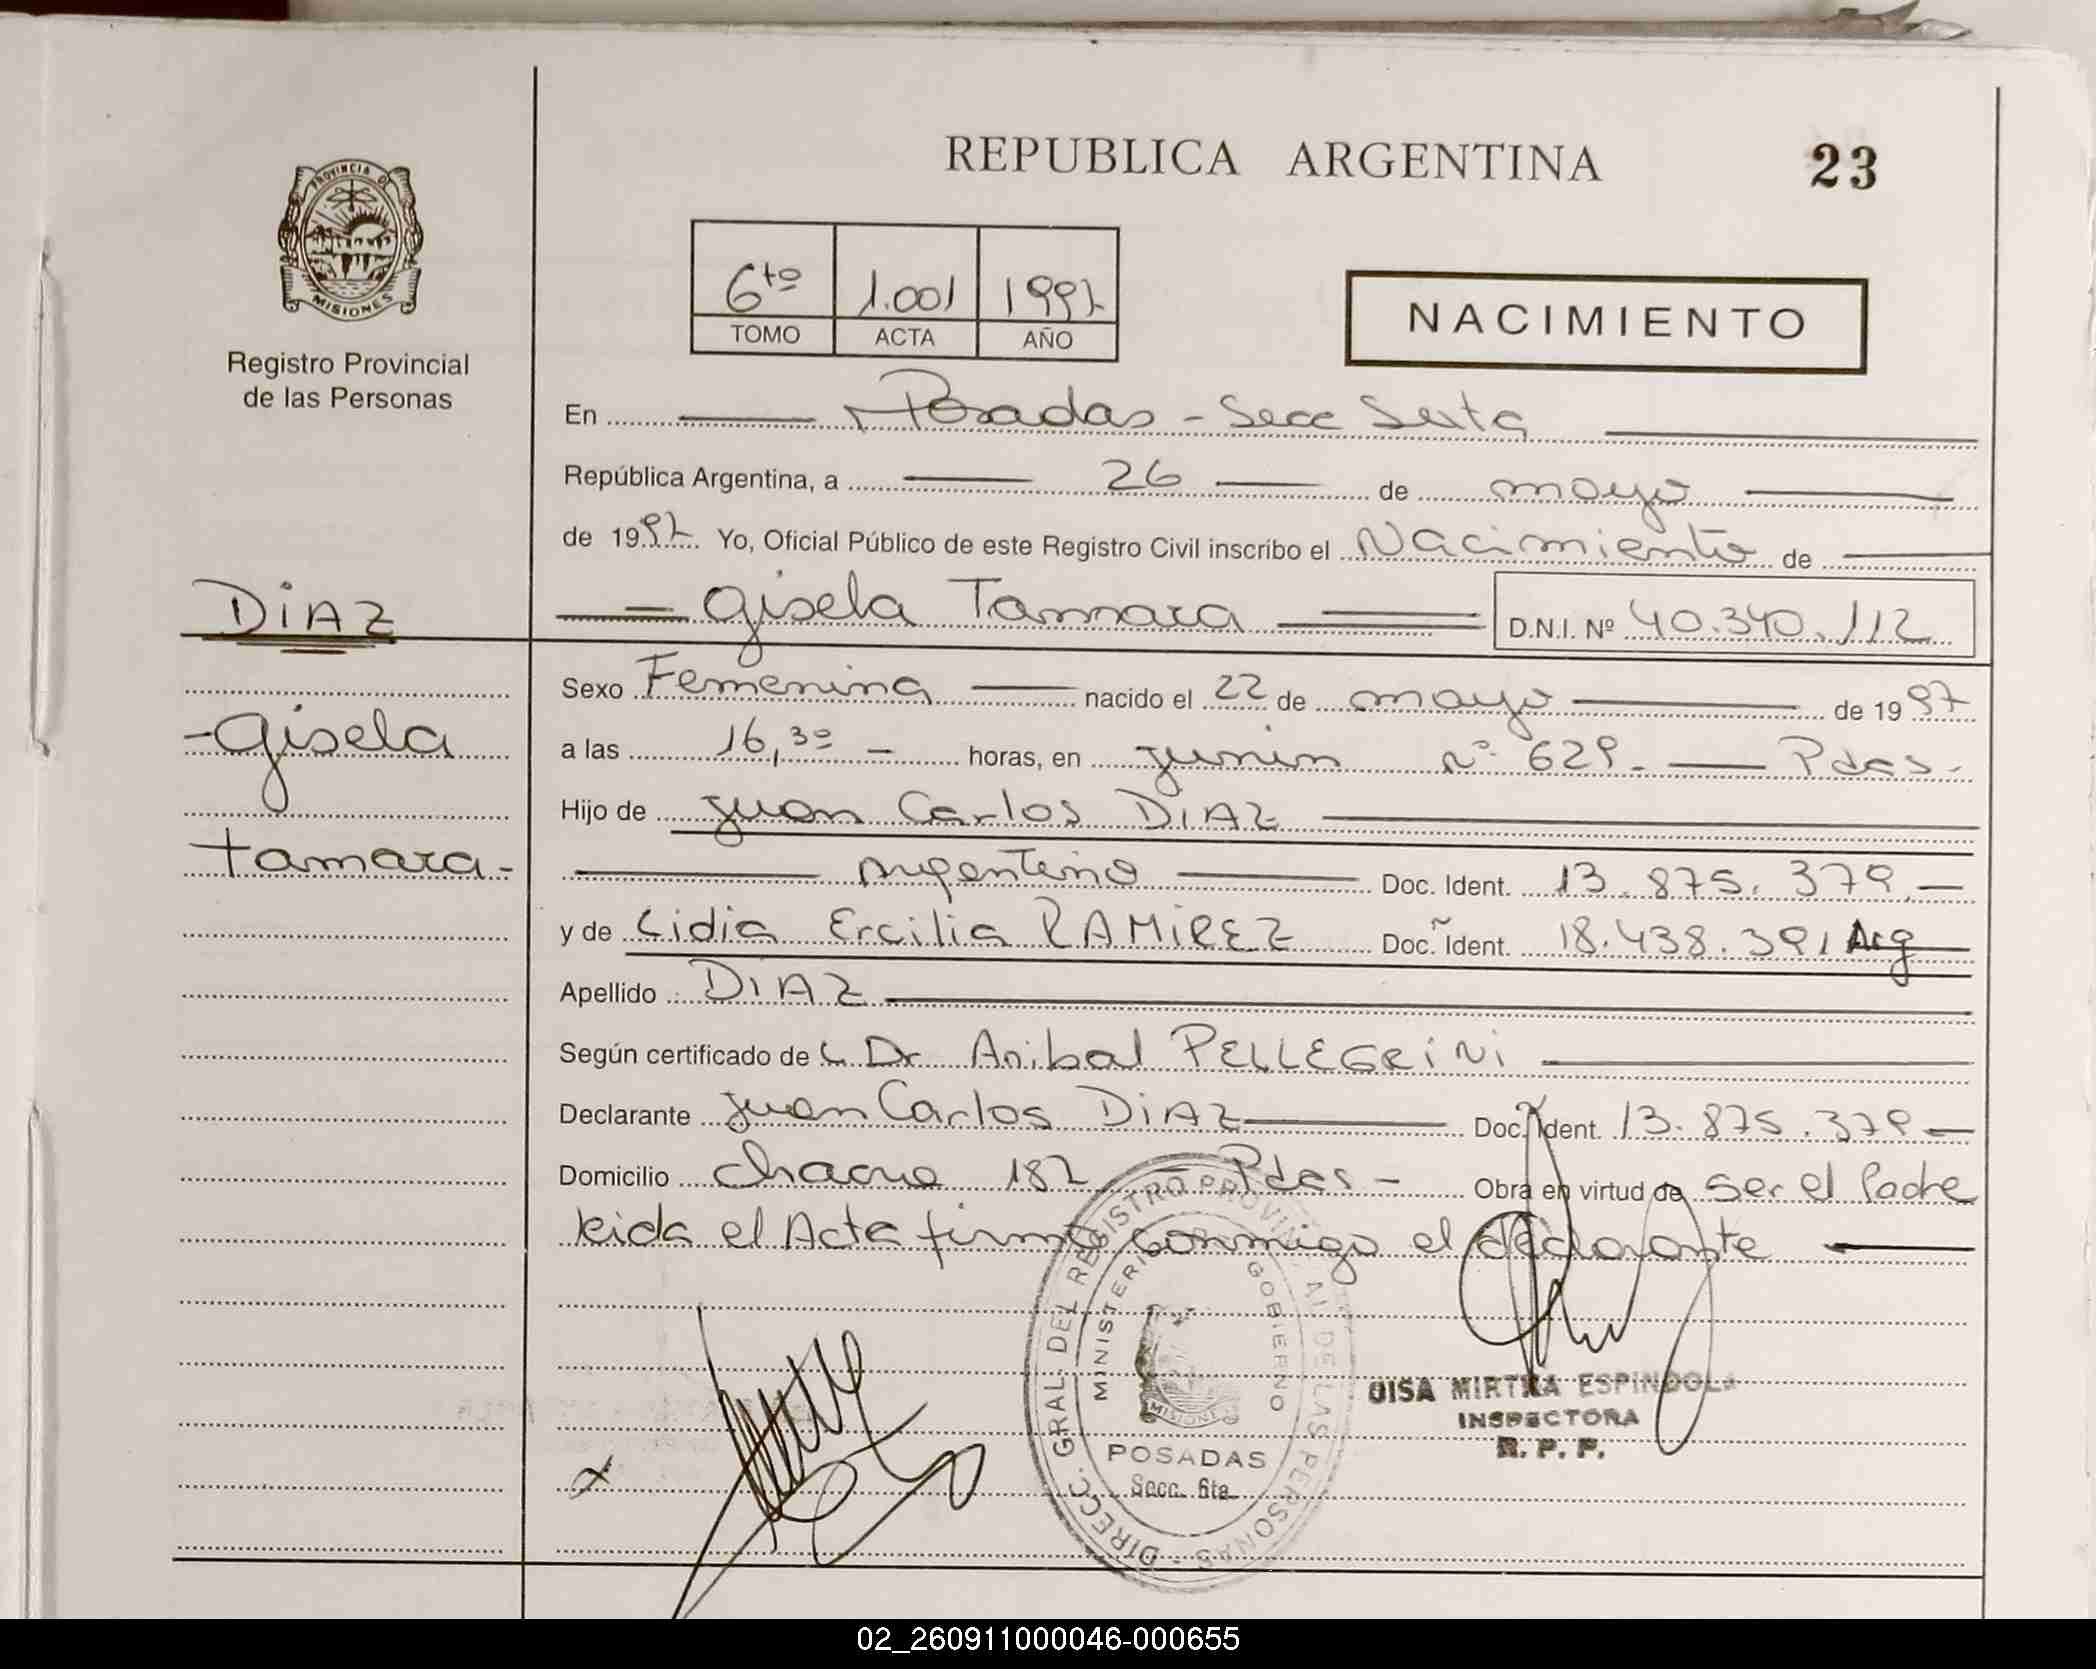 REPUBLICA ARGENTINA 23
PROVINCIA DE
MISIONES
Registro Provincial
de las Personas
6to 1.001 1997
TOMO ACTA AÑO
NACIMIENTO
En Posadas - Secc Sexta
República Argentina, a 26 de mayo
de 1997 Yo, Oficial Público de este Registro Civil inscribo el Nacimiento de
DIAZ
Gisela Tamara D.N.I. Nº 40.340.112
Sexo Femenina nacido el 22 de mayo de 1997
- Gisela
a las 16,30 - horas, en Junin Nº 629 - Pdas -
Hijo de Juan Carlos DIAZ
tamara -
argentino Doc. Ident. 13.875.379 -
y de Lidia Ercilia RAMIREZ Doc. Ident. 18.438.391 Arg
Apellido DIAZ
Según certificado de Dr. Anibal PELLEGRINI
Declarante Juan Carlos DIAZ Doc. Ident. 13.875.379 -
Domicilio 182 - Pdas - Obra en virtud de Ser el Padre
Leida el Acta firma conmigo el declarante
DIRECC. GRAL. DEL REGISTRO PROVINCIAL DE LAS PERSONAS -
MINISTERIO DE GOBIERNO
MISIONES
POSADAS
Secc. 6ta.
MIRTHA ESPINDOLA
INSPECTORA
R. P. P.
02_260911000046-000655